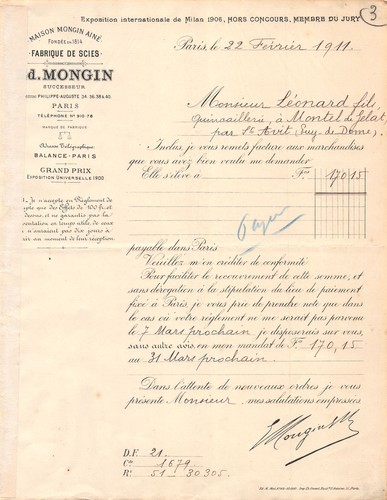 Exposition internationale de Milan 1906, HORS CONCOURS, MEMBRE DU JURY
3
MAISON MONGIN AINÉ
FONDÉE EN 1814
FABRIQUE DE SCIES
MONGIN
SUCCESSEUR
PHILIPPE-AUGUSTE 34, 36, 38 & 40
PARIS
TÉLÉPHONE Nº 910-78
MARQUE DE FABRIQUE
Adresse Télégraphique
BALANCE-PARIS
GRAND PRIX
EXPOSITION UNIVERSELLE 1900
Je n'accepte au Règlement de
que des Effets de 100 fr. et
et ne garantis pas la
en temps utile de ceux
n'auraient pas dix jours à
au moment de leur réception
Paris, le 22 Février 1911.
Monsieur Léonard fils,
Quincaillerie, à Montel de Gelat,
par St Avit, Puy de Dôme,
Inclus, je vous remets facture aux marchandises
que vous avez bien voulu me demander.
Elle s'élève à Frs 170 15
Payer
payable dans Paris
Veuillez m'en créditer de conformité
Pour faciliter le recouvrement de cette somme, et
sans dérogation à la stipulation du lieu de paiement
fixé à Paris, je vous prie de prendre note que dans
le cas où votre règlement ne me serait pas parvenu
le 7 Mars prochain, je disposerais sur vous,
sans autre avis, en mon mandat de F. 170,15
au 31 Mars prochain.
Dans l'attente de nouveaux ordres je vous
présente Monsieur, mes salutations empressées
D.F. 21
1679
R. 51 - 30.305